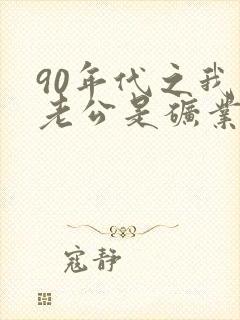 90年代之我
老公是礦業
寇静